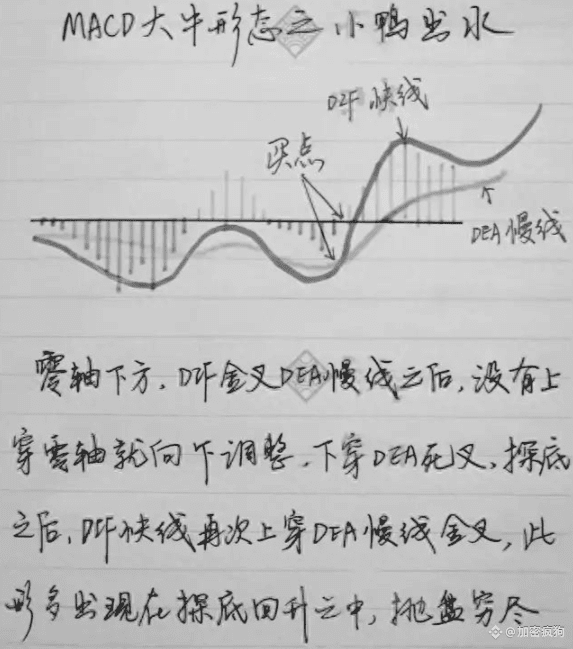 MACD大牛形态之小鸭出水
DIF快线
买点
DEA慢线
零轴下方,DIF金叉DEA慢线之后,没有上
穿零轴就向下调整,下穿DEA死叉,探底
之后,DIF快线再次上穿DEA慢线金叉,此
形多出现在探底回升之中,抛盘穷尽
@加密疯狗